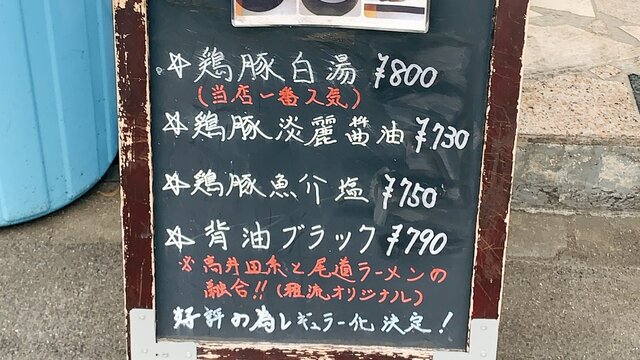 ☆鶏豚白湯 ¥800
(当店一番人気)
☆鶏豚淡麗醤油 ¥730
☆鶏豚魚介塩 ¥750
☆背油ブラック ¥790
※高井田系と尾道ラーメンの
融合!!(種流オリジナル)
好評の為レギュラー化決定!